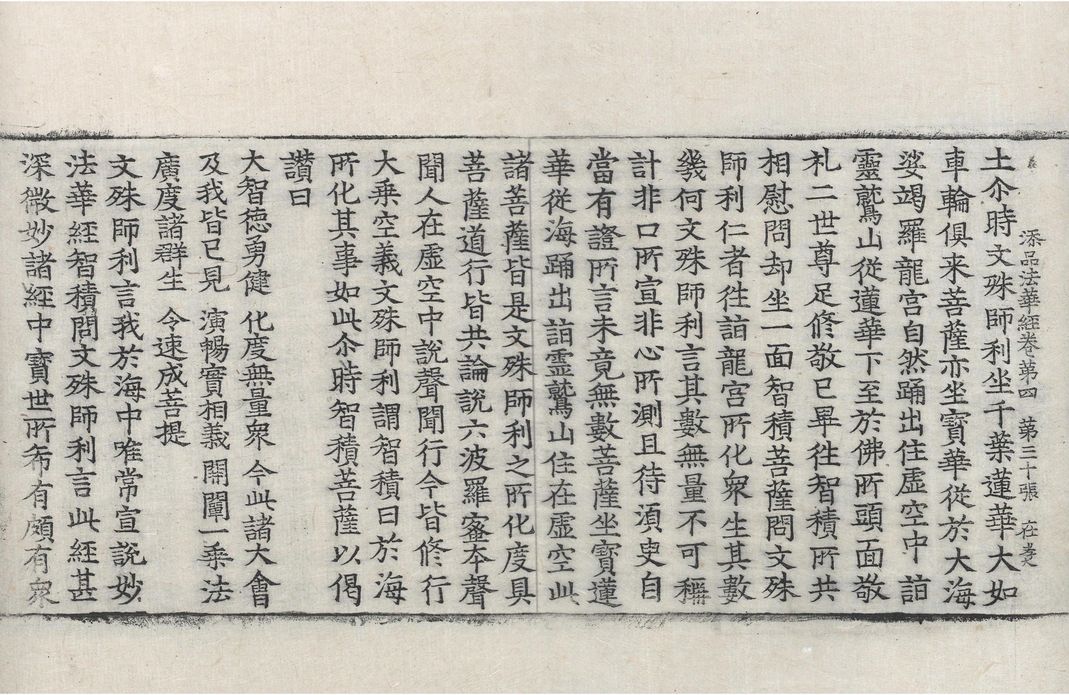 添品法華經卷第四 第三十張 在
土尒時文殊師利坐千葉蓮華大如
車輪俱来菩薩亦坐寶華從於大海
娑竭羅龍宮自然踊出住虛空中詣
靈鷲山從蓮華下至於佛所頭面敬
礼二世尊足修敬已畢往智積所共
相慰問却坐一面智積菩薩問文殊
師利仁者徃詣龍宮所化衆生其數
幾何文殊師利言其數無量不可稱
計非口所宣非心所測且待湏臾自
當有證所言未竟無數菩薩坐寶蓮
華從海踊出詣霊鷲山住在虛空此
諸菩薩皆是文殊師利之所化度具
菩薩道行皆共論說六波羅蜜本聲
聞人在虛空中說聲聞行今皆修行
大乘空義文殊師利謂智積曰於海
所化其事如此尒時智積菩薩以偈
讚曰
大智德勇健 化度無量衆 今此諸大會
及我皆已見 演暢實相義 開闡一乘法
廣度諸群生 令速成菩提
文殊師利言我於海中唯常宣說妙
法華經智積問文殊師利言此經甚
深微妙諸經中寶世所希有頗有衆